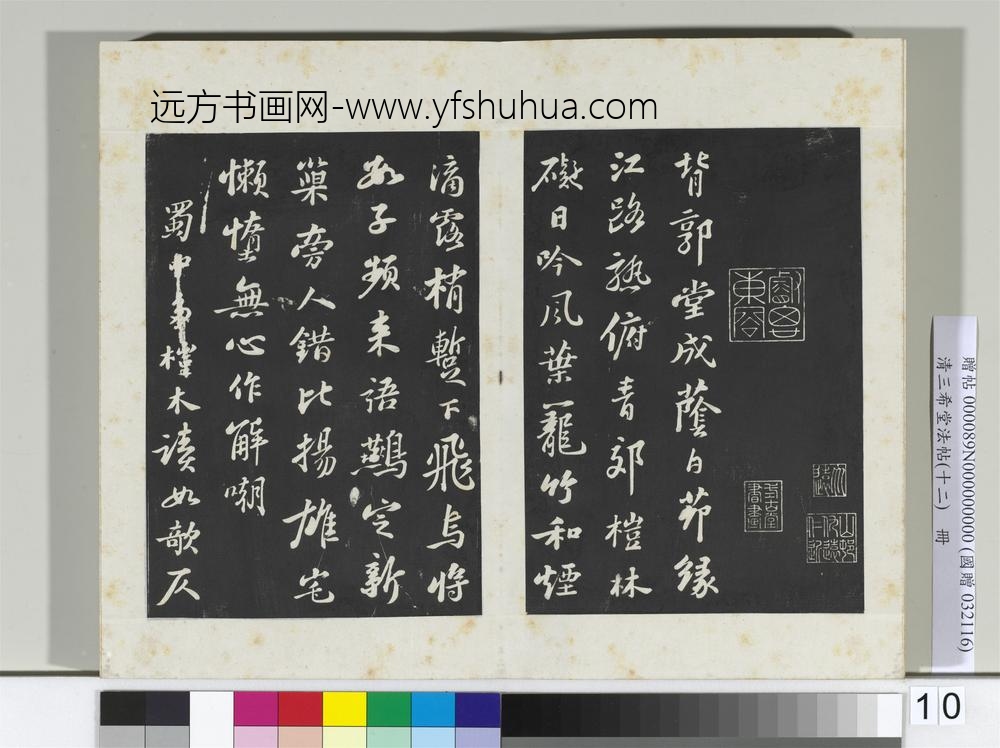 远方书画网-www.yfshuhua.com
背郭堂成蔭白茆緣
江路熟俯青郊榿林
礙日吟風葉籠竹和煙
滴露梢蹔下飛烏將
數子頻来語鷰定新
巢旁人錯比揚雄宅
懶惰無心作解嘲
蜀中
榿木讀如欹仄
贈帖 000089N000000000 (國贈 032116)
清三希堂法帖(十二) 冊
10